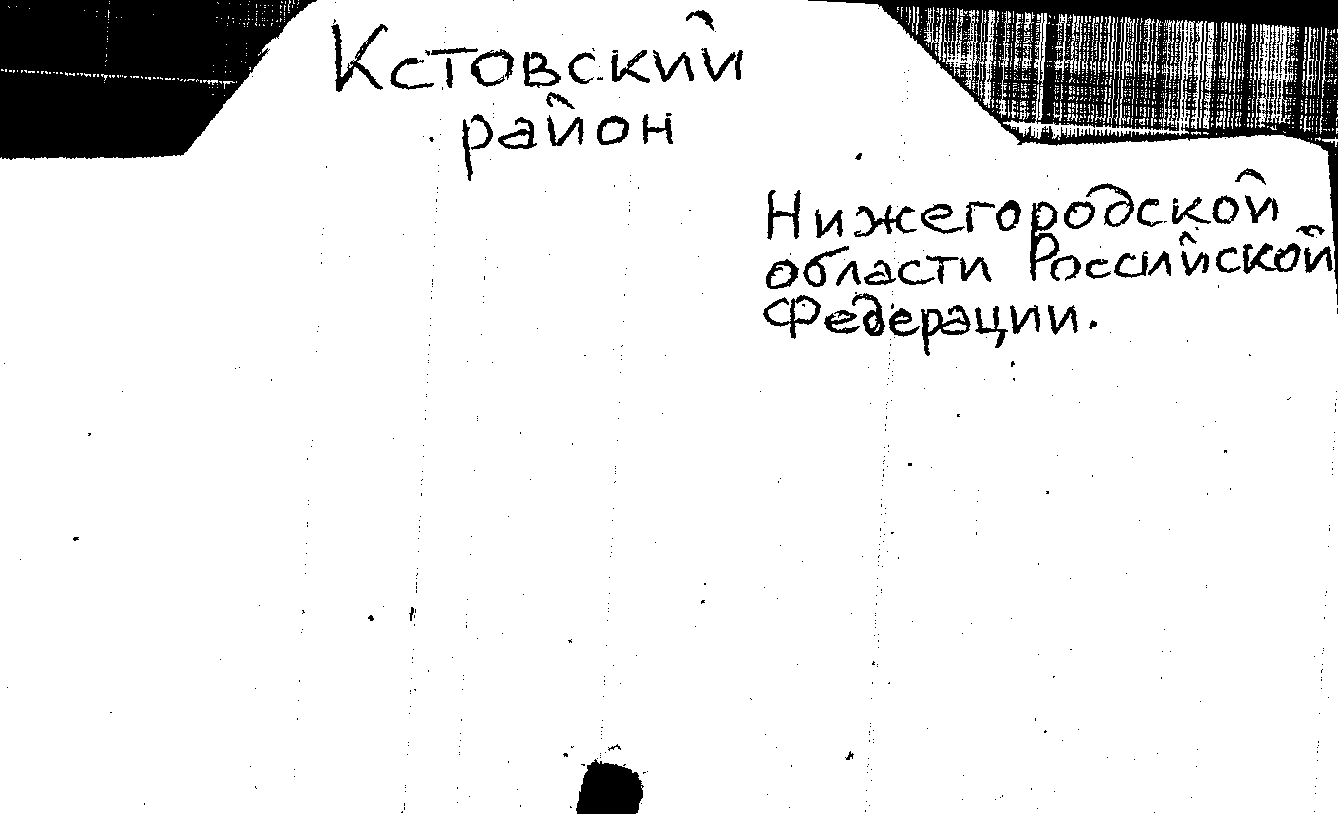 Кстовский
район
Нижегородской
области Российской
Федерации.